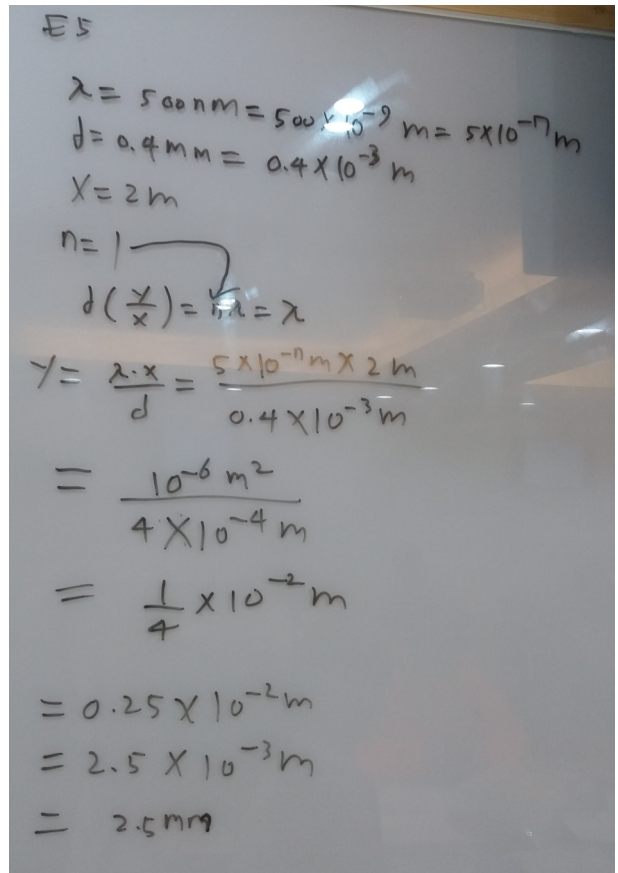 E5
λ = 500nm = 500 × 10⁻⁹ m = 5×10⁻⁷ m
d = 0.4mm = 0.4 × 10⁻³ m
X = 2m
n = 1
d(y/x) = nλ = λ
y = λ·x/d = 5 × 10⁻⁷ m × 2m / 0.4 × 10⁻³ m
= 10⁻⁶ m² / 4 × 10⁻⁴ m
= 1/4 × 10⁻² m
= 0.25 × 10⁻² m
= 2.5 × 10⁻³ m
= 2.5mm